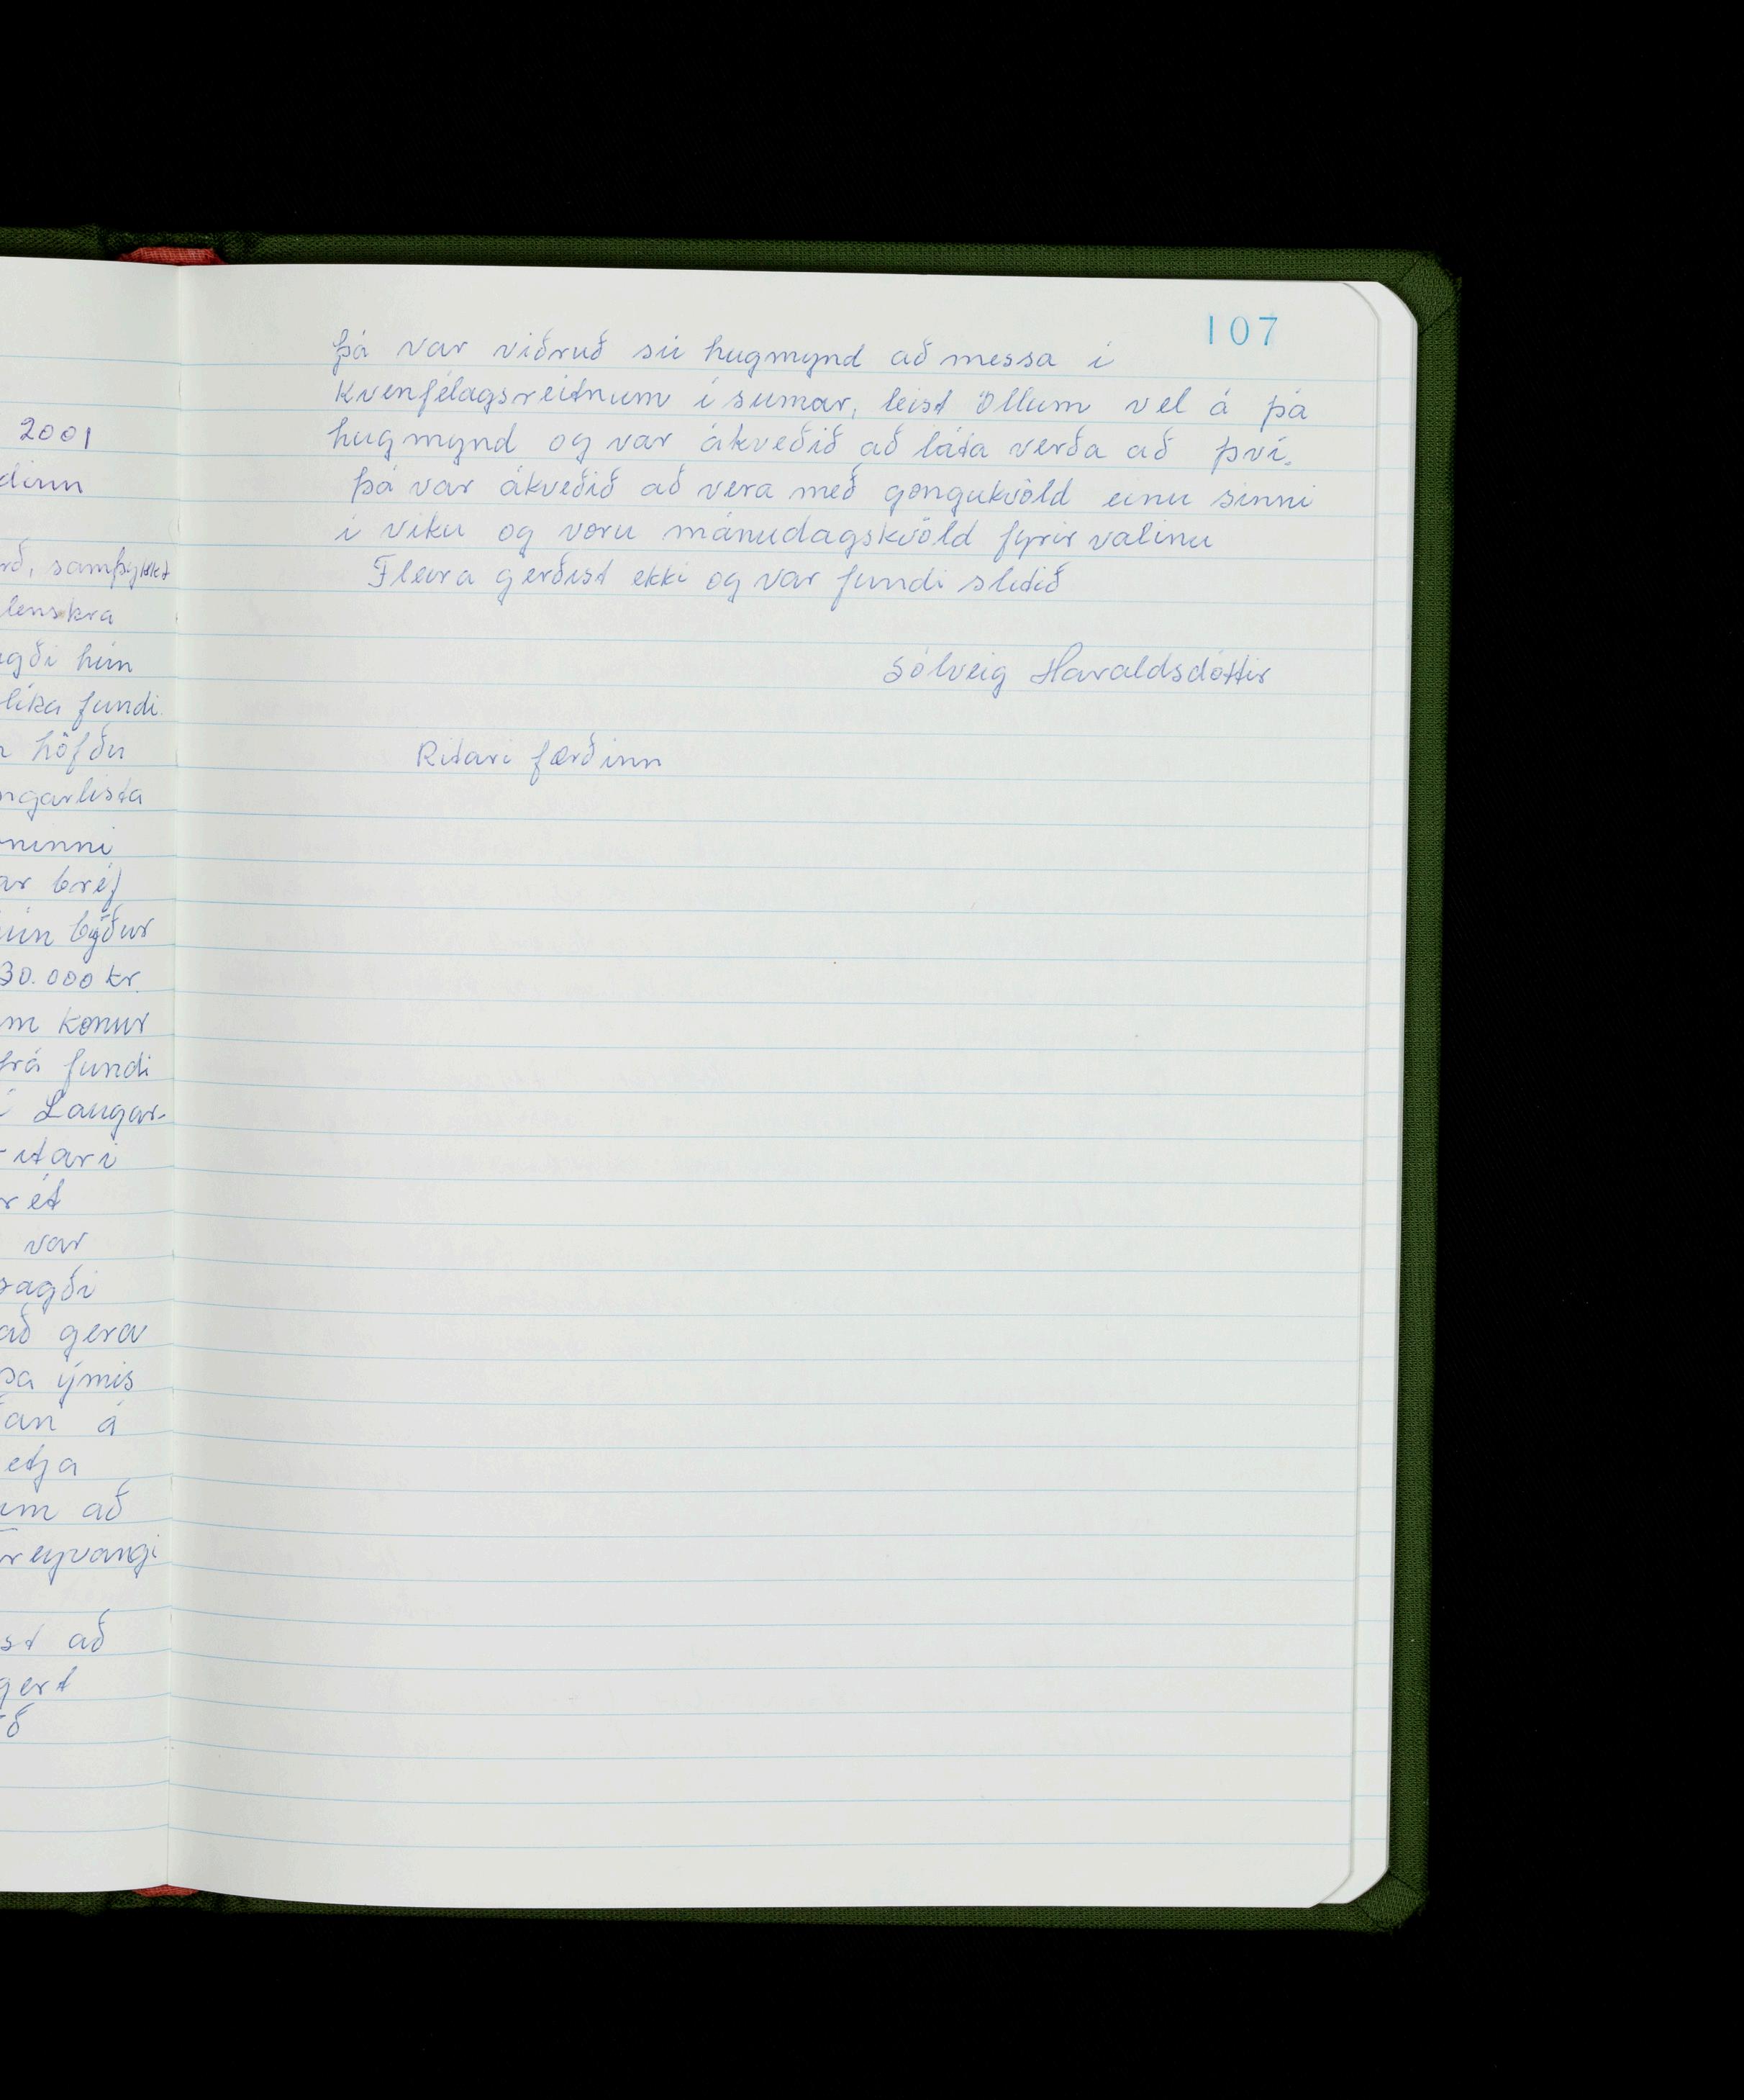 2001
dinn
rð, samþykkt
lenskra
gði hún
líka fundi.
höfðu
ngarlista
ninni
ar bréf
ún býður
30.000 kr.
m konur
frá fundi
í Laugar-
itari
rét
var
sagði
að gera
sa ýmis
an á
etja
um að
reyvangi
st að
gert
107
Þá var viðruð sú hugmynd að messa í
Kvenfélagsreitnum í sumar, leist öllum vel á þá
hugmynd og var ákveðið að láta verða að því.
Þá var ákveðið að vera með göngukvöld einu sinni
í viku og voru mánudagskvöld fyrir valinu
Fleira gerðist ekki og var fundi slitið
Sólveig Haraldsdóttir
Ritari færðinn